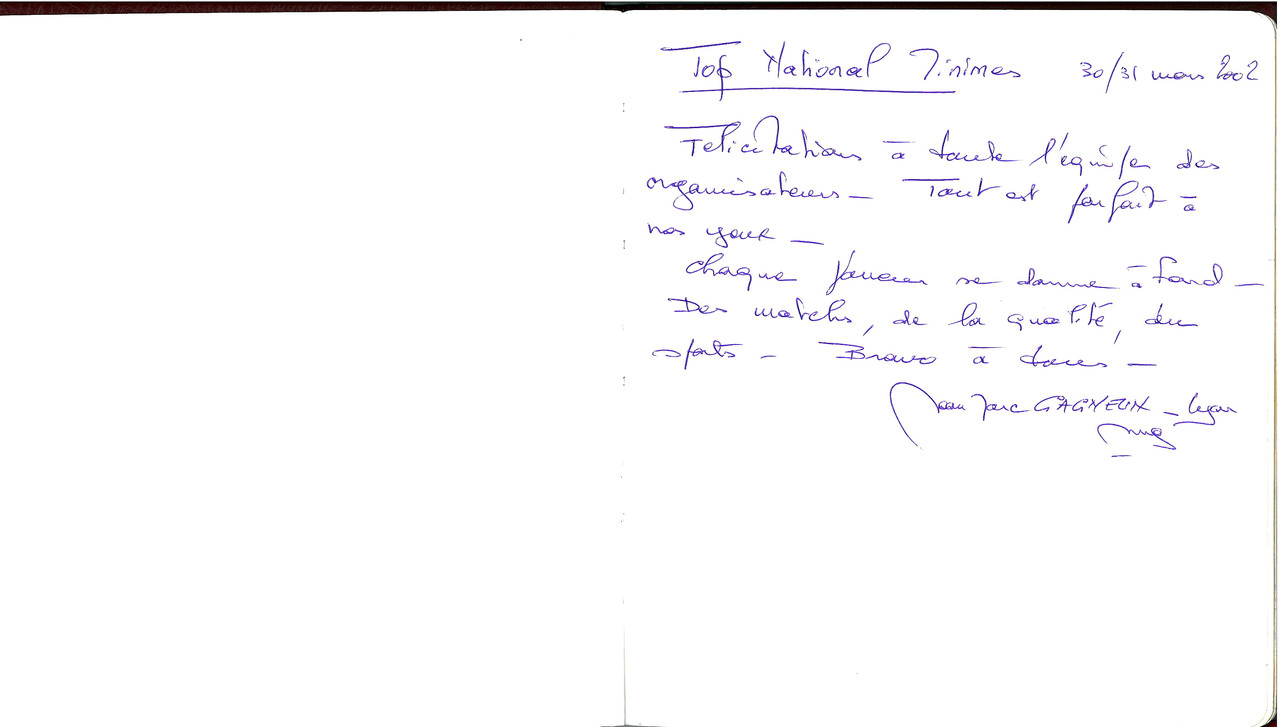 Top National Minimes 30/31 mars 2002
Felicitations à toute l'équipe des
organisateurs - Tout est parfait à
nos yeux -
Chaque joueur se donne à fond -
Des matchs, de la qualité, du
sports - Bravo à tous -
Jean Marc GAGNEUX - Lyon